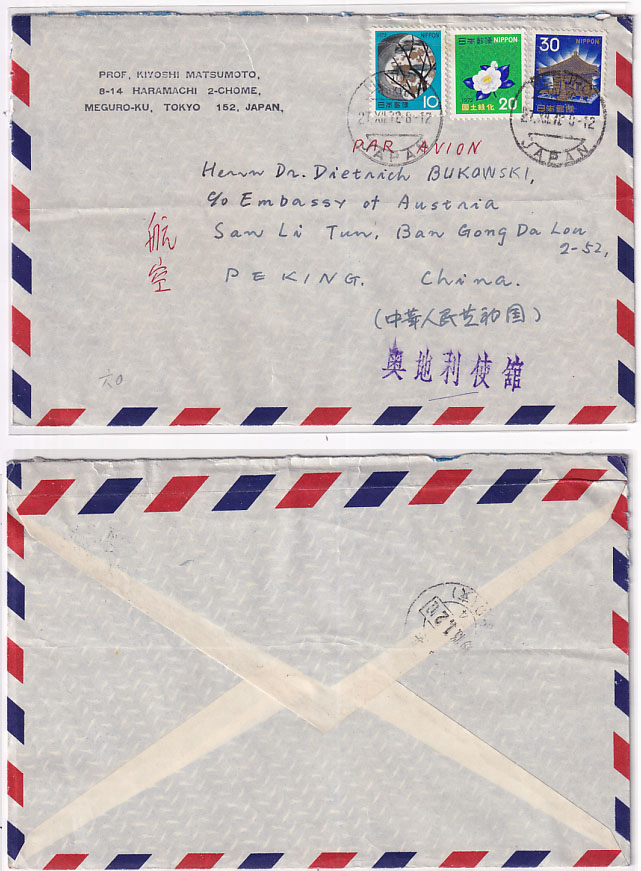 PROF. KIYOSHI MATSUMOTO,
8-14 HARAMACHI 2-CHOME,
MEGURO-KU, TOKYO 152, JAPAN,
1972 NIPPON
日本郵便 10
日本郵便 NIPPON
1972 国土緑化 20
30 NIPPON
日本郵便
27.XII.72.8-12
JAPAN
27.XII.72.8-12
JAPAN
PAR AVION
Herrn Dr. Dietrich BUKOWSKI,
c/o Embassy of Austria
San Li Tun, Ban Gong Da Lou
2-52,
PEKING. China.
(中華人民共和国)
航空
奥地利使馆
六〇